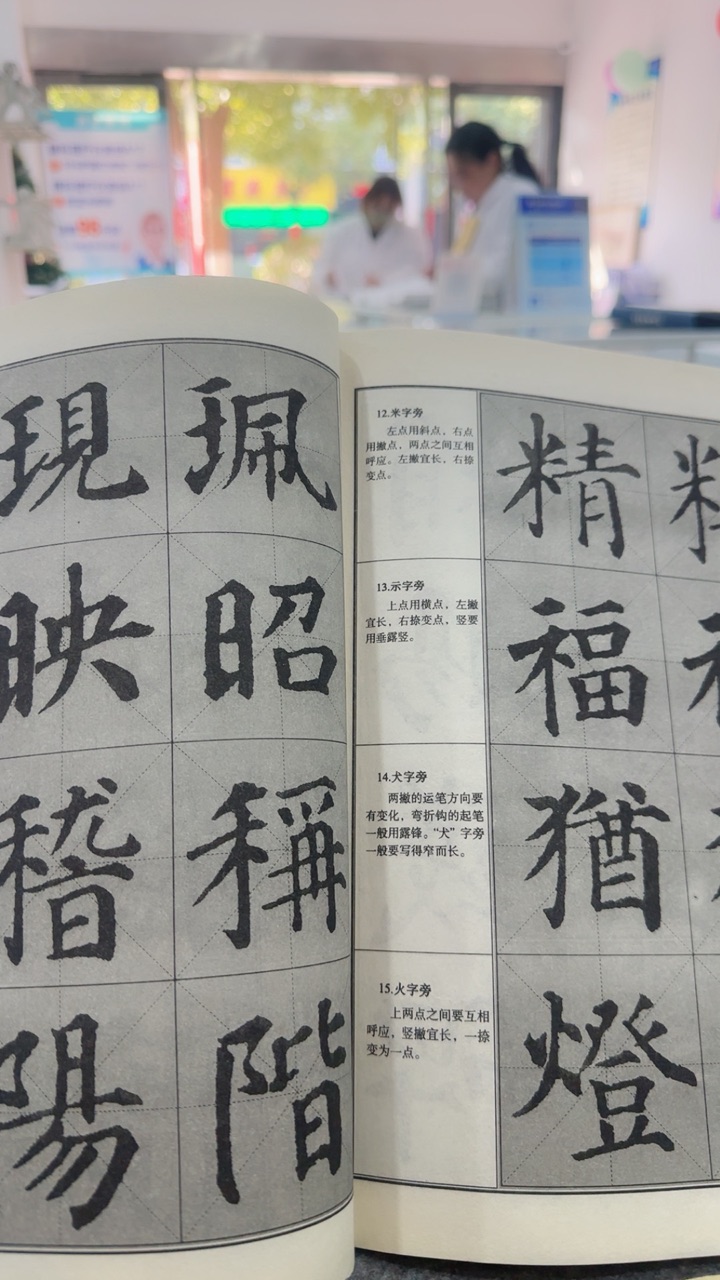 現 珮
映 昭
稽 稱
陽 階
12.米字旁
左点用斜点，右点
用撇点，两点之间互相
呼应。左撇宜长，右捺
变点。
精
13.示字旁
上点用横点，左撇
宜长，右捺变点，竖要
用垂露竖。
福
14.犬字旁
两撇的运笔方向要
有变化，弯折钩的起笔
一般用露锋。“犬”字旁
一般要写得窄而长。
猶
15.火字旁
上两点之间要互相
呼应，竖撇宜长，一捺
变为一点。
燈